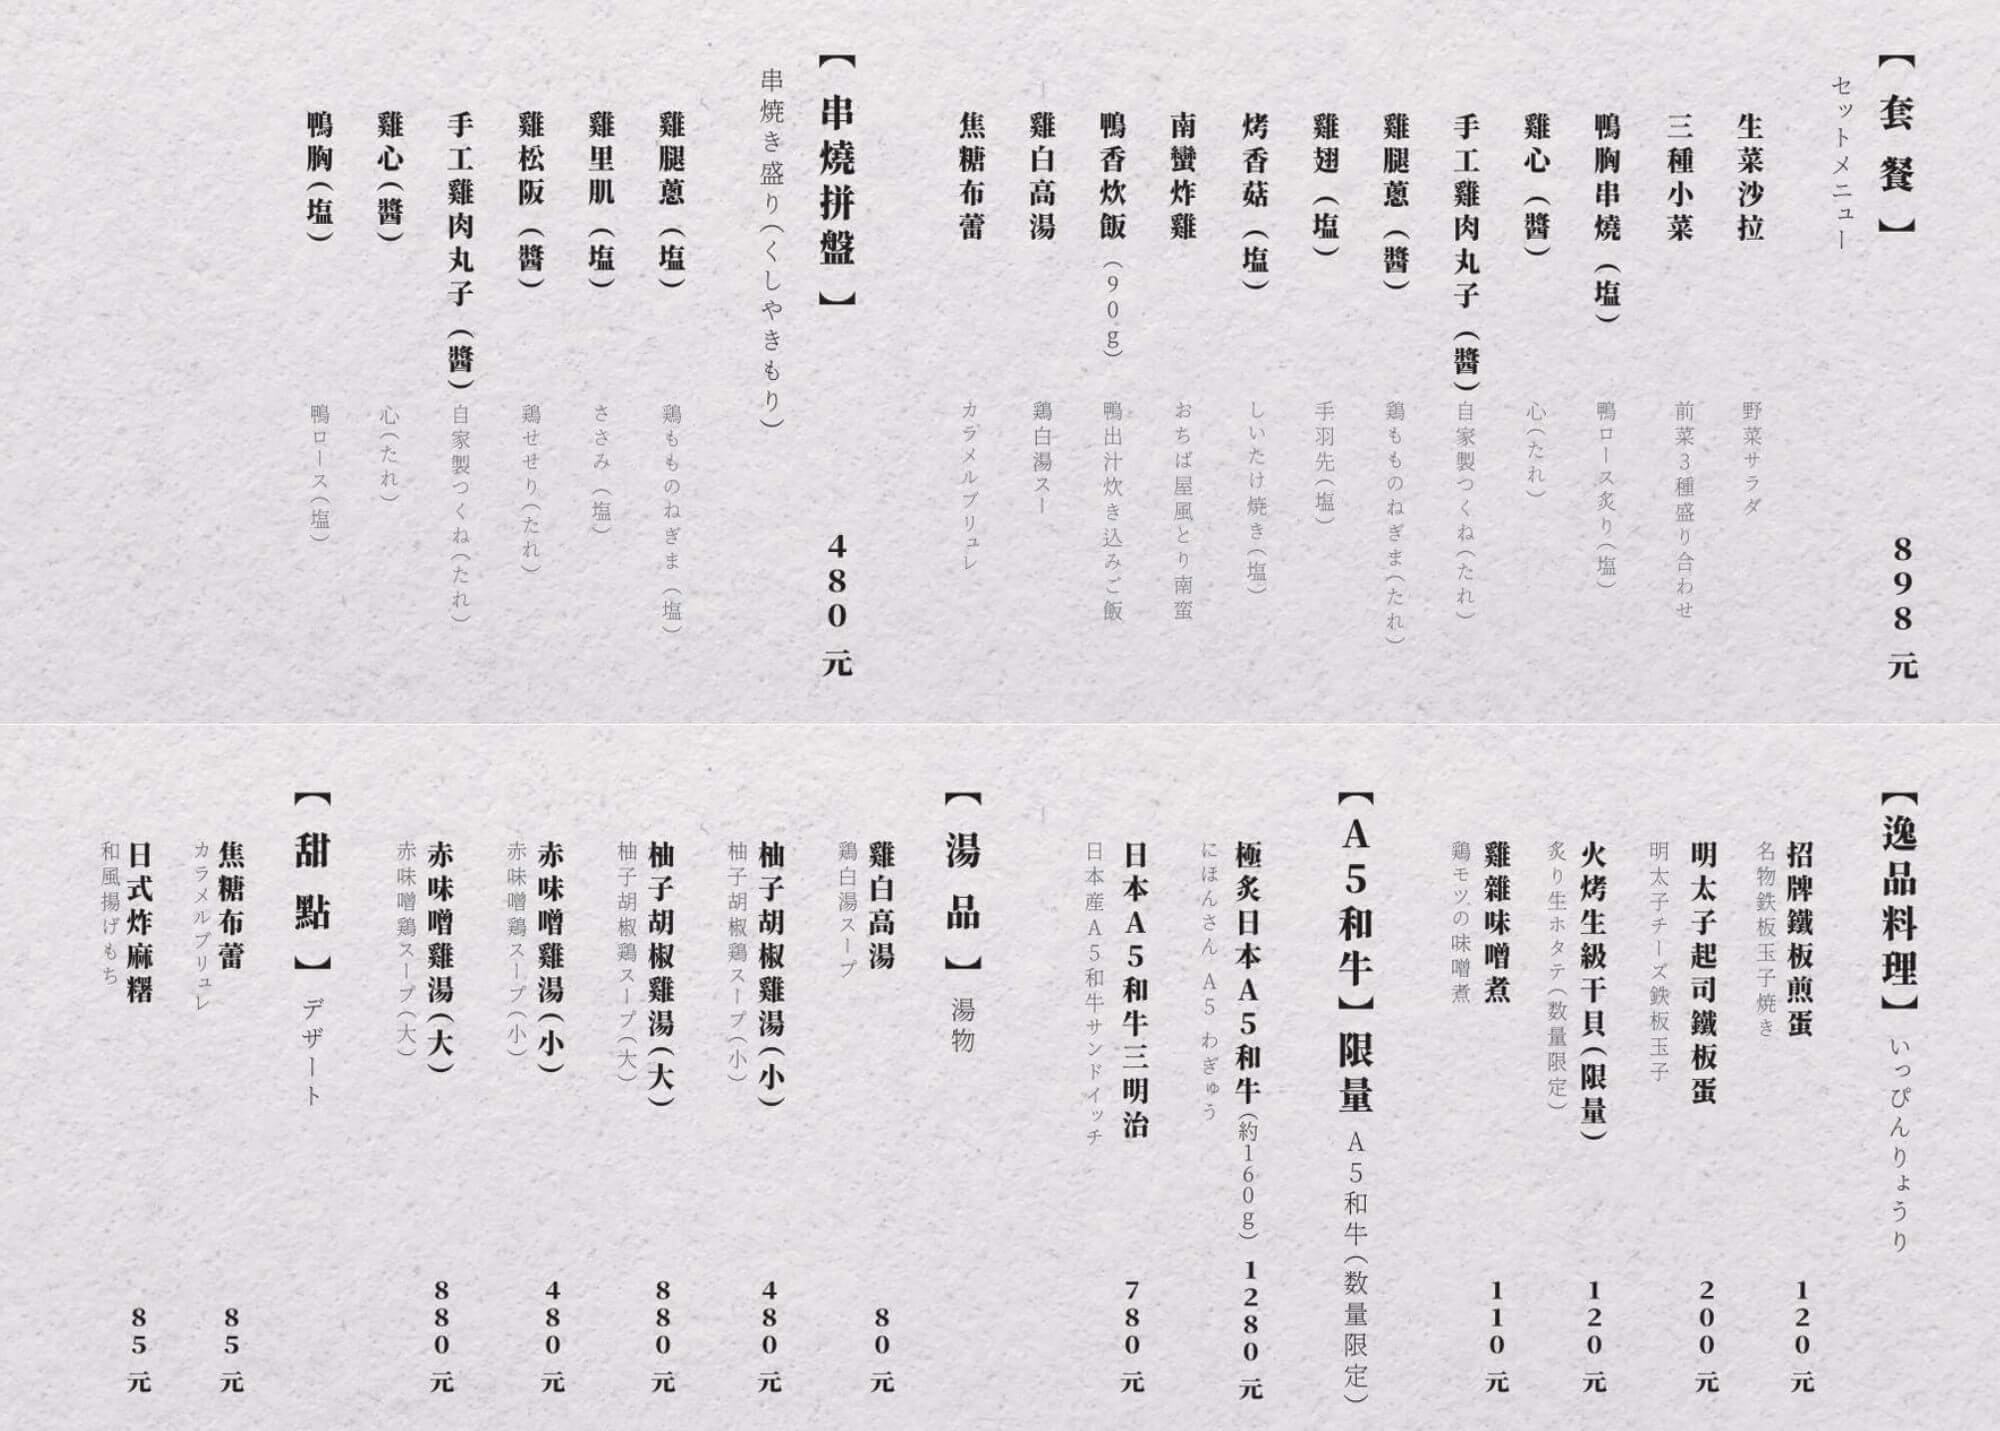 【套餐】
898元
セットメニュー
生菜沙拉
野菜サラダ
三種小菜
前菜3種盛り合わせ
鴨胸串燒（塩）
鴨ロース炙り（塩）
雞心（醬）
心（たれ）
手工雞肉丸子（醬）
自家製つくね（たれ）
雞腿蔥（醬）
鶏もものねぎま（たれ）
雞翅（塩）
手羽先（塩）
烤香菇（塩）
しいたけ焼き（塩）
南蠻炸雞
おちば屋風とり南蛮
鴨香炊飯（90g）
鴨出汁炊き込みご飯
雞白高湯
鶏白湯スー
焦糖布蕾
カラメルブリュレ
【串燒拼盤】
480元
串焼き盛り（くしやきもり）
雞腿蔥（塩）
鶏もものねぎま（塩）
雞里肌（塩）
ささみ（塩）
雞松阪（醬）
鶏せせり（たれ）
手工雞肉丸子（醬）
自家製つくね（たれ）
雞心（醬）
心（たれ）
鴨胸（塩）
鴨ロース（塩）
【逸品料理】いっぴんりょうり
招牌鐵板煎蛋 120元
名物鉄板玉子焼き
明太子起司鐵板蛋 200元
明太子チーズ鉄板玉子
火烤生級干貝（限量） 120元
炙り生ホタテ（数量限定）
雞雜味噌煮 110元
鶏モツの味噌煮
【A5和牛】限量 A5和牛（数量限定）
極炙日本A5和牛（約160g） 1280元
にほんさん A5 わぎゅう
日本A5和牛三明治 780元
日本産A5和牛サンドイッチ
【湯品】湯物
雞白高湯 80元
鶏白湯スープ
柚子胡椒雞湯（小） 480元
柚子胡椒鶏スープ（小）
柚子胡椒雞湯（大） 880元
柚子胡椒鶏スープ（大）
赤味噌雞湯（小） 480元
赤味噌鶏スープ（小）
赤味噌雞湯（大） 880元
赤味噌鶏スープ（大）
【甜點】デザート
焦糖布蕾 85元
カラメルブリュレ
日式炸麻糬 85元
和風揚げもち